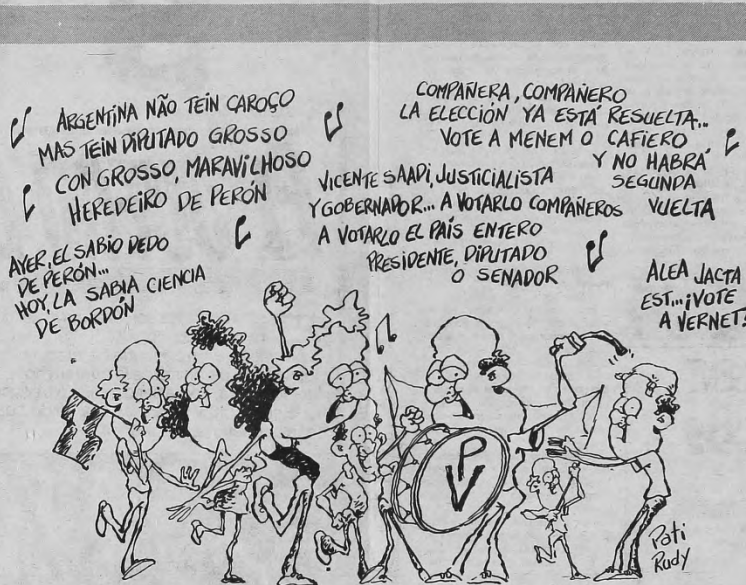 ARGENTINA NÃO TEIN CAROÇO
MAS TEIN DIPUTADO GROSSO
CON GROSSO, MARAVILHOSO
HEREDEIRO DE PERÓN
AYER, EL SABIO DEDO
DE PERÓN...
HOY, LA SABIA CIENCIA
DE BORDÓN
COMPAÑERA, COMPAÑERO
LA ELECCIÓN YA ESTÁ RESUELTA...
VOTE A MENEM O CAFIERO
Y NO HABRÁ
SEGUNDA
VUELTA
VICENTE SAADI, JUSTICIALISTA
Y GOBERNADOR... A VOTARLO COMPAÑEROS
A VOTARLO EL PAÍS ENTERO
PRESIDENTE, DIPUTADO
O SENADOR
ALEA JACTA
EST... ¡VOTE
A VERNET!
P
V
Pati
Rudy